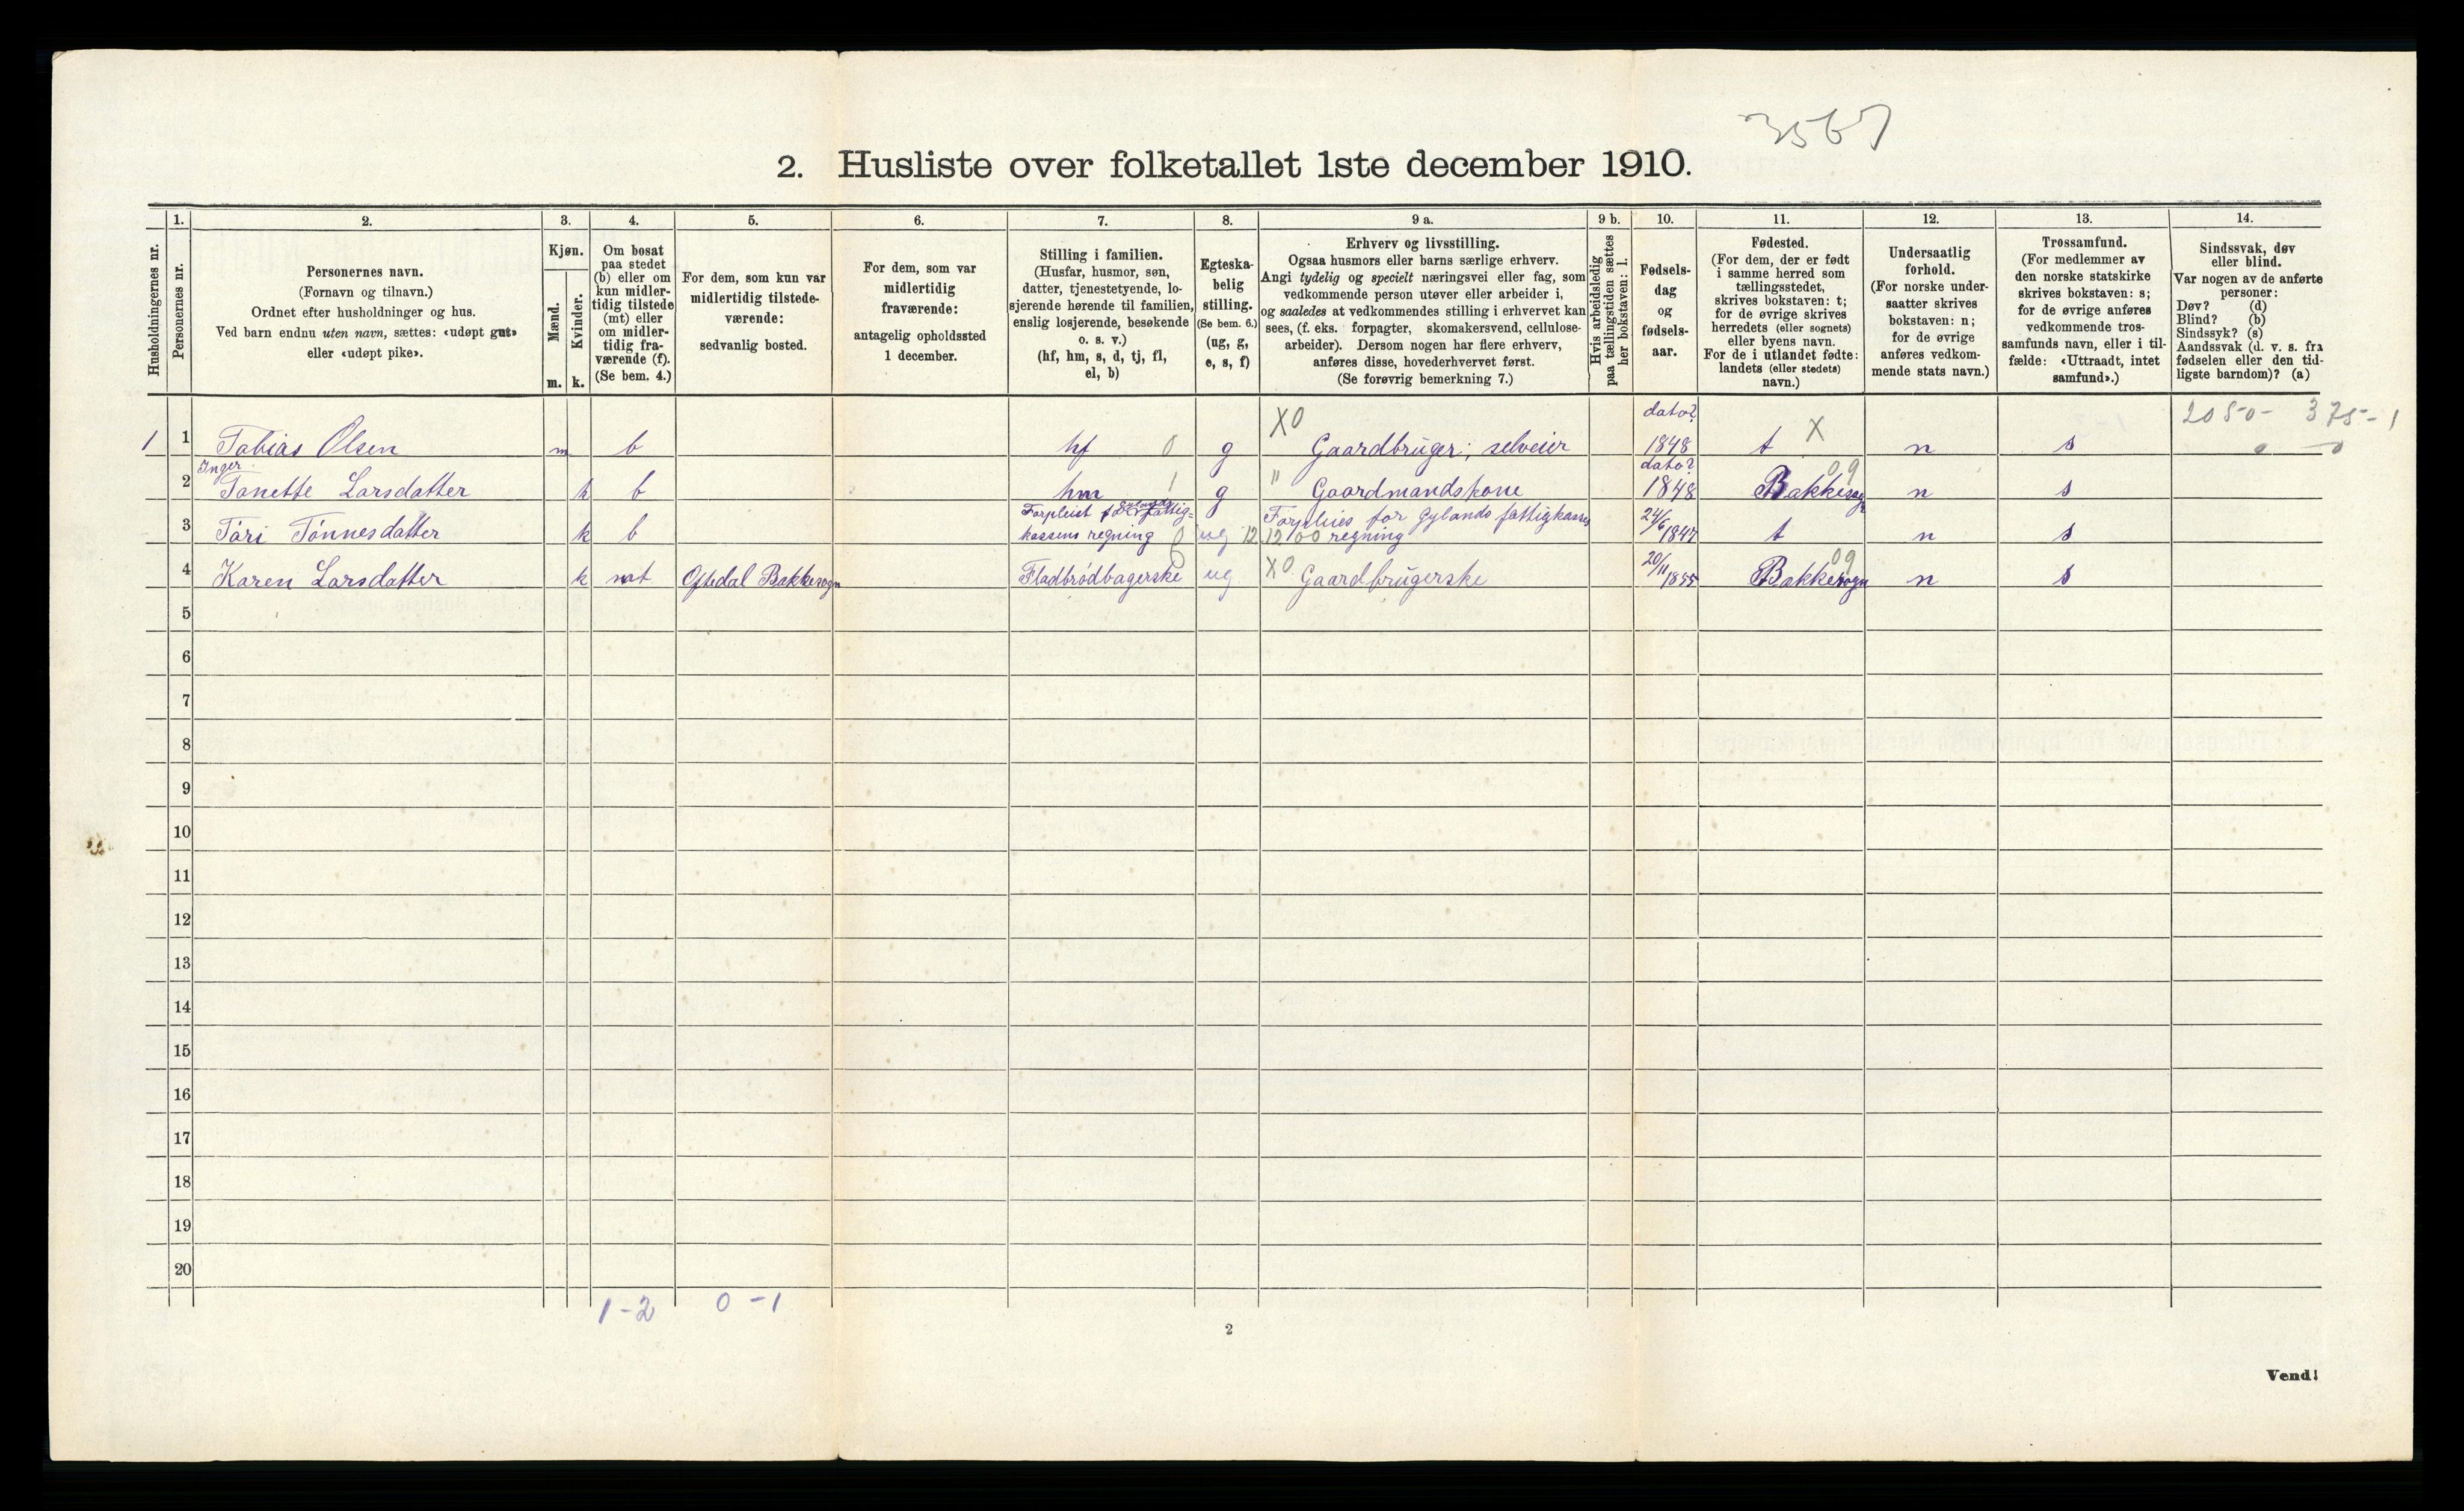 3567
2. Husliste over folketallet 1ste december 1910.
Husholdningernes nr.
1.
Personernes nr.
2.
Personernes navn.
(Fornavn og tilnavn.)
Ordnet efter husholdninger og hus.
Ved barn endnu uten navn, sættes: «udøpt gut»
eller «udøpt pike».
3.
Kjøn.
Mænd.
Kvinder.
m. k.
4.
Om bosat
paa stedet
(b) eller om
kun midler-
tidig tilstede
(mt) eller
om midler-
tidig fra-
værende (f).
(Se bem. 4.)
5.
For dem, som kun var
midlertidig tilstede-
værende:
sedvanlig bosted.
6.
For dem, som var
midlertidig
fraværende:
antagelig opholdssted
1 december.
7.
Stilling i familien.
(Husfar, husmor, søn,
datter, tjenestetyende, lo-
sjerende hørende til familien,
enslig losjerende, besøkende
o. s. v.)
(hf, hm, s, d, tj, fl,
el, b)
8.
Egteska-
belig
stilling.
(Se bem. 6.)
(ug, g,
e, s, f)
9 a.
Erhverv og livsstilling.
Ogsaa husmors eller barns særlige erhverv.
Angi tydelig og specielt næringsvei eller fag, som
vedkommende person utøver eller arbeider i,
og saaledes at vedkommendes stilling i erhvervet kan
sees, (f. eks. forpagter, skomakersvend, cellulose-
arbeider). Dersom nogen har flere erhverv,
anføres disse, hovederhvervet først.
(Se forøvrig bemerkning 7.)
9 b.
Hvis arbeidsledig
paa tællingstiden sættes
her bokstaven: l.
10.
Fødsels-
dag
og
fødsels-
aar.
11.
Fødested.
(For dem, der er født
i samme herred som
tællingsstedet,
skrives bokstaven: t;
for de øvrige skrives
herredets (eller sognets)
eller byens navn.
For de i utlandet fødte:
landets (eller stedets)
navn.)
12.
Undersaatlig
forhold.
(For norske under-
saatter skrives
bokstaven: n;
for de øvrige
anføres vedkom-
mende stats navn.)
13.
Trossamfund.
(For medlemmer av
den norske statskirke
skrives bokstaven: s;
for de øvrige anføres
vedkommende tros-
samfunds navn, eller i til-
fælde: «Uttraadt, intet
samfund».)
14.
Sindssvak, døv
eller blind.
Var nogen av de anførte
personer:
Døv? (d)
Blind? (b)
Sindssyk? (s)
Aandssvak (d. v. s. fra
fødselen eller den tid-
ligste barndom)? (a)
1 1 Tobias Olsen m b hf 0 g X0 Gaardbruger; selveier dato? 1848 t X n s 205-0- 375-1
Inger
2 Tanette Larsdatter k b hm 1 g " Gaardmandskone dato? 1848 Bakkesogn 09 n s
3 Tóri Tónnesdatter k b Forpleiet for Gylands fattig-
kassens regning 0 ug 12 Forpleies for Gylands fattigkasses
1200 regning 24/6 1847 t n s
4 Karen Larsdatter k mt Oftedal Bakkesogn Fladbródbagerske 0 ug X0 Gaardbrugerske 20/11 1855 Bakkesogn 09 n s
5
6
7
8
9
10
11
12
13
14
15
16
17
18
19
20
1-2 0-1
2
Vend!